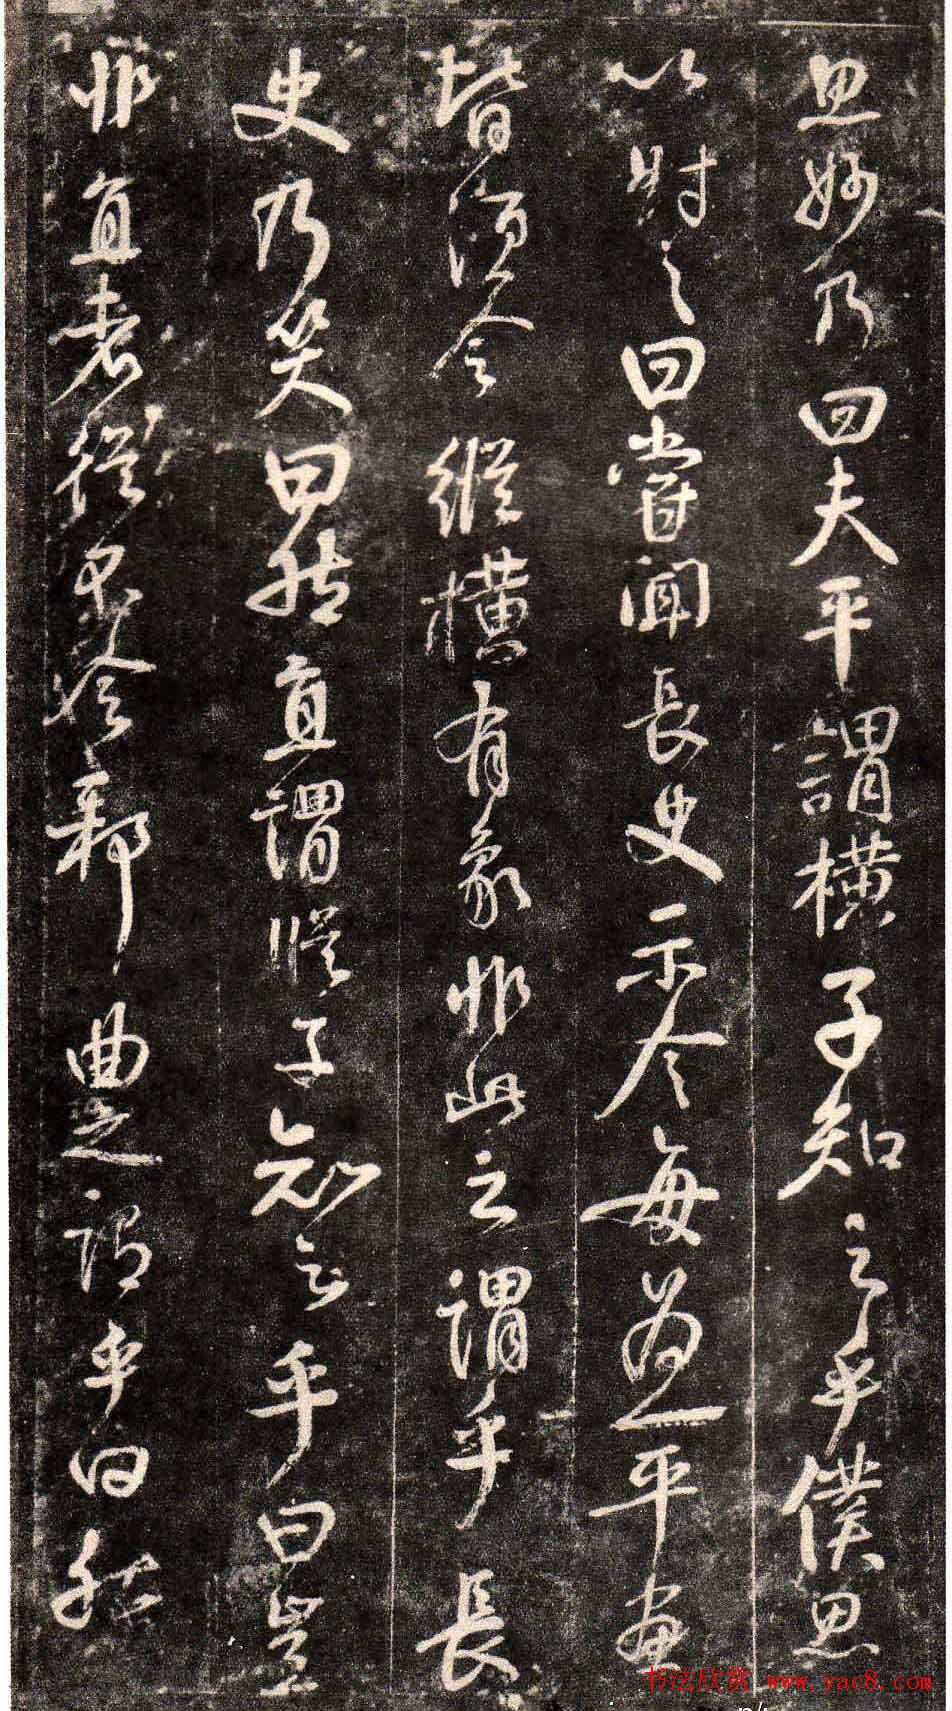 思妙乃曰夫平謂橫子知之乎僕思
以對之曰嘗聞長史示令每為一平畫
皆須令縱橫有象非此之謂乎長
史乃笑曰然直謂縱子知之乎曰豈
非直者縱不令邪曲之謂乎曰然
书法欣赏 www.yac8.com